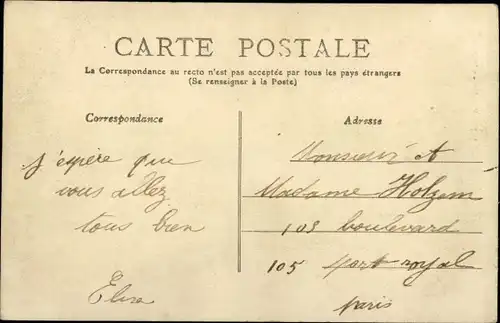 CARTE POSTALE
La Correspondance au recto n'est pas acceptée par tous les pays étrangers
(Se renseigner à la Poste)
Correspondance
j'espère que
vous allez
tous bien
Elisa
Adresse
Monsieur et
Madame
103 boulevard
105 port royal
paris